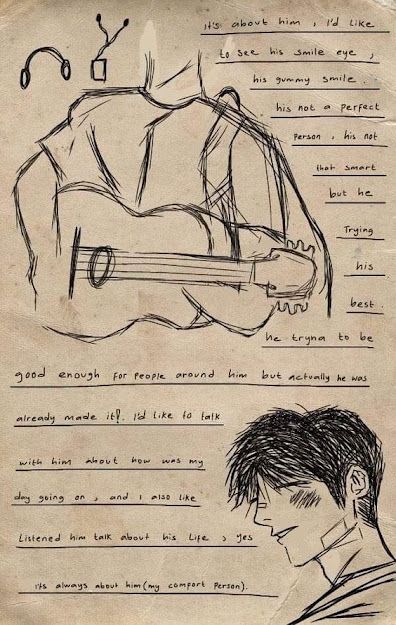 it's about him, I'd like
to see his smile eye,
his gummy smile.
his not a perfect
person, his not
that smart
but he
Trying
his
best.
he tryna to be
good enough for people around him but actually he was
already made it!. I'd like to talk
with him about how was my
day going on, and I also like
Listened him talk about his life, yes
its always about him (my comfort person).